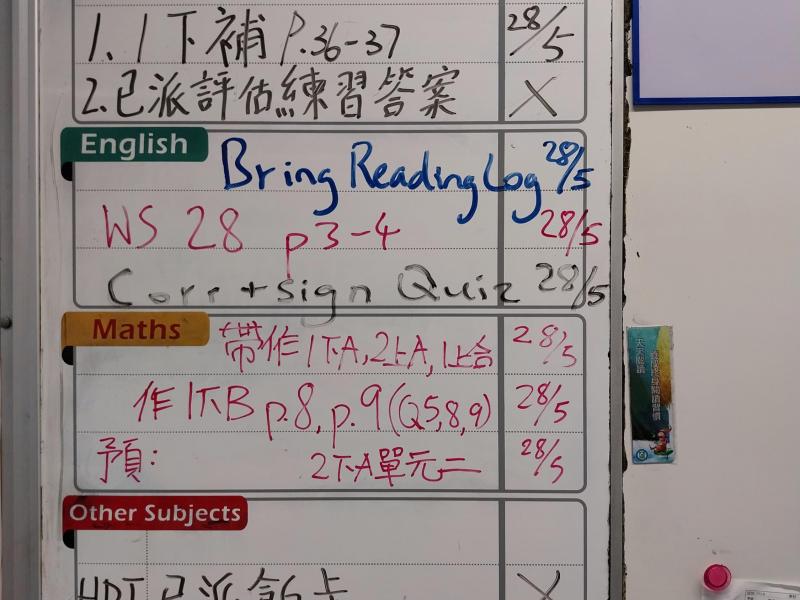 1. 1下補 P.36-37 28/5
2. 已派評估練習答案 X
English
Bring Reading Log 28/5
WS 28 p3-4 28/5
Corr + sign Quiz 28/5
Maths
帶作1下A, 2上A, 1上合 28/5
作1下B p.8, p.9 (Q5,8,9) 28/5
預: 2下A單元二 28/5
Other Subjects
已派 X